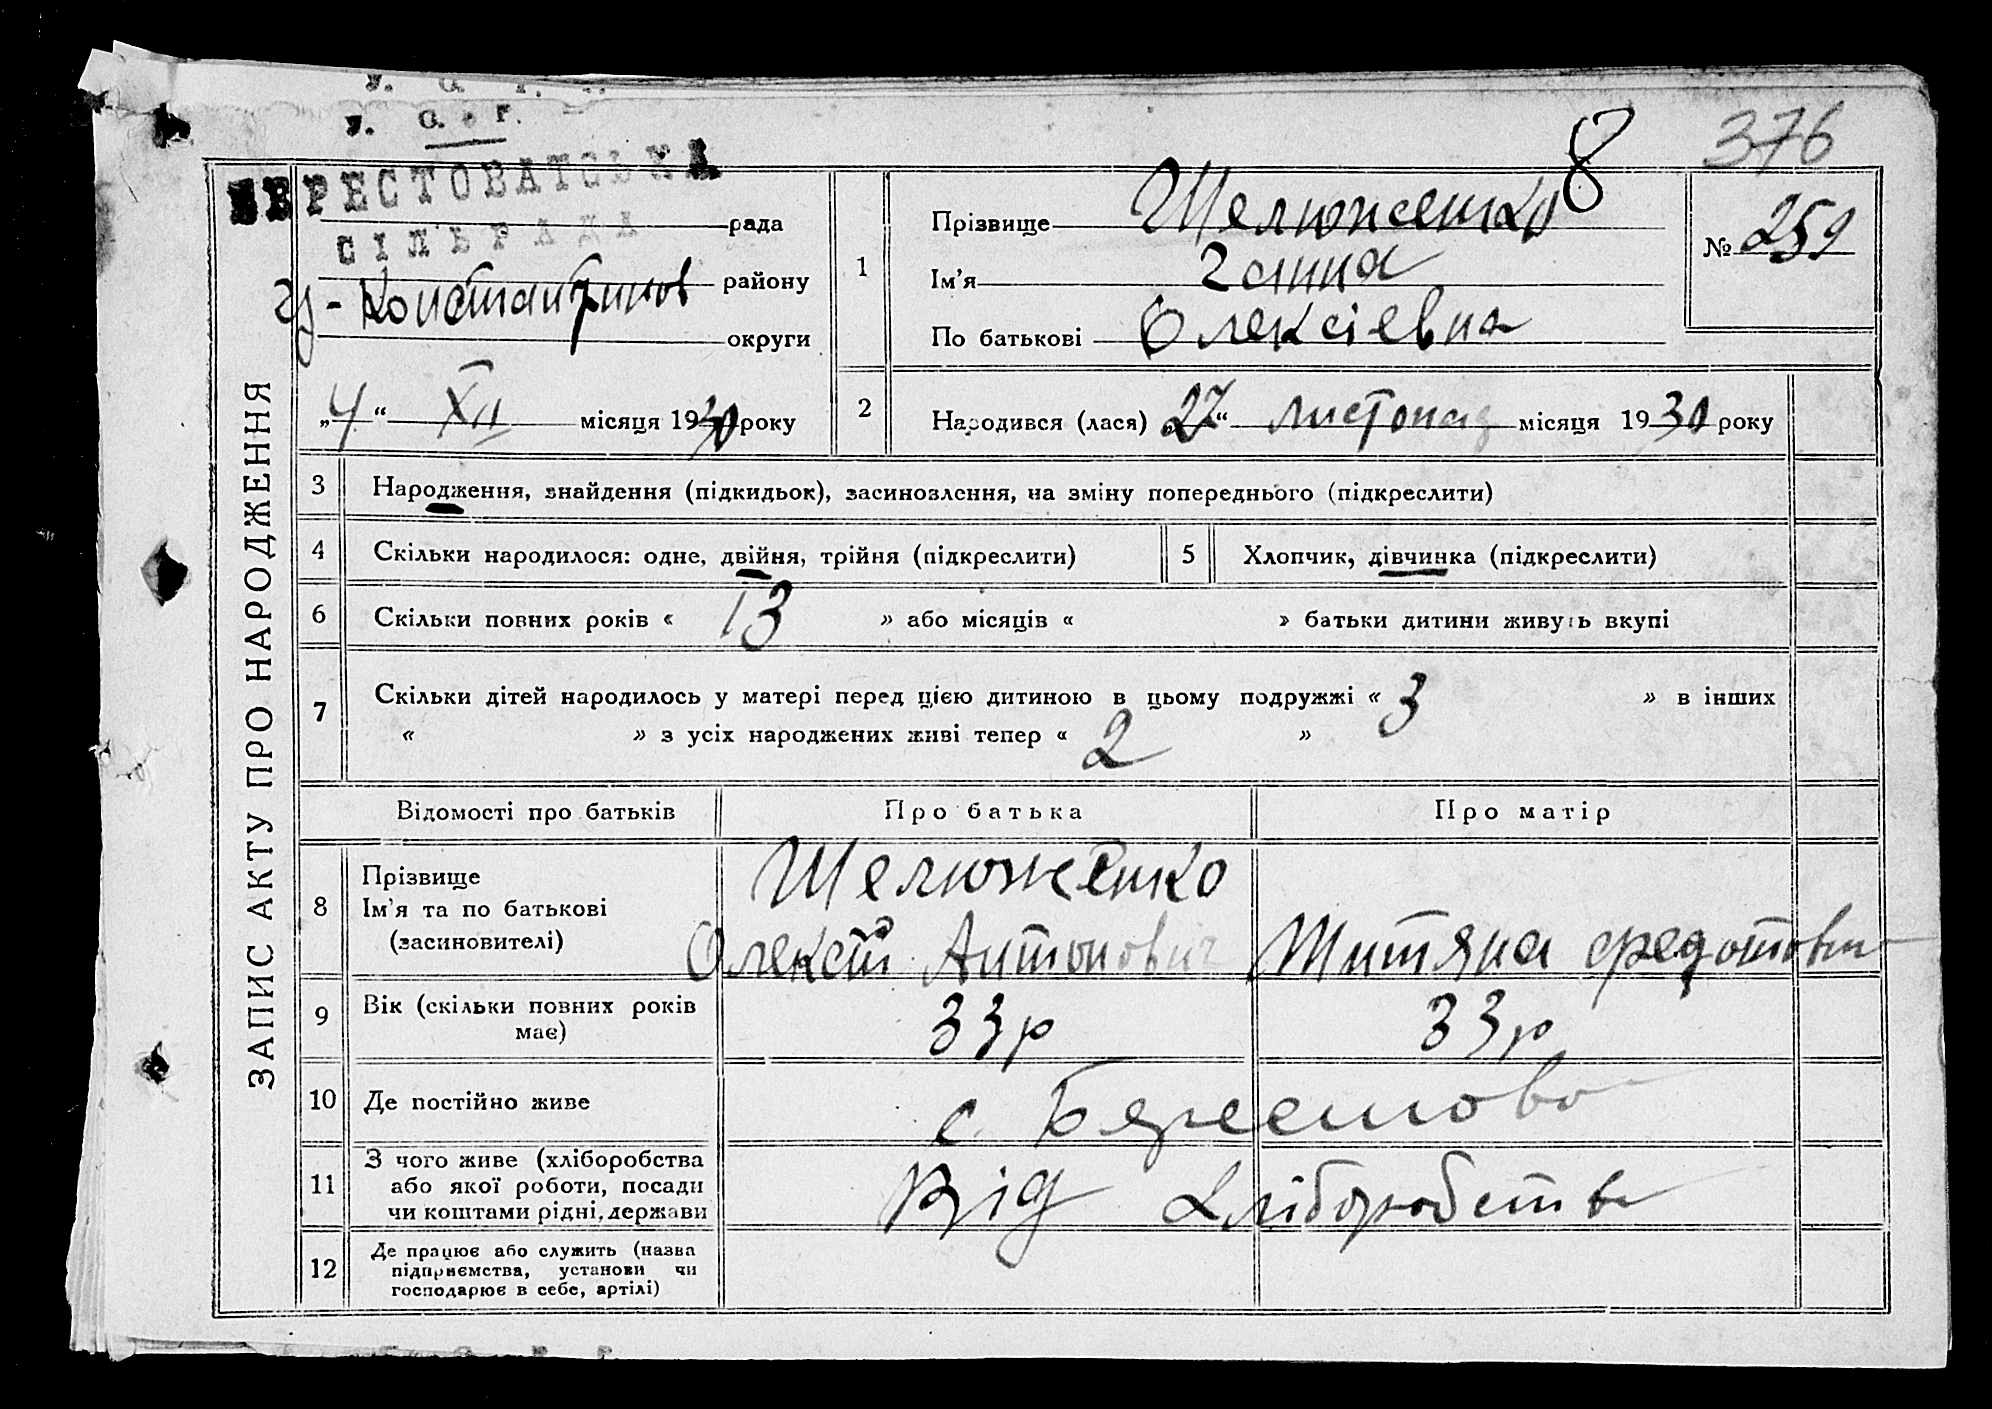 у. с. г.
376
БЕРЕСТОВАТСЬКА
СІЛЬРАДА
рада
району
округи
1
Прізвище Шелюженко 8
Ім’я Ганна
По батькові Олексієвна
№ 259
„4“ XII місяця 1930 року
2
Народився (лася) „27“ листопад місяця 1930 року
ЗАПИС АКТУ ПРО НАРОДЖЕННЯ
3 Народження, знайдення (підкидьок), засиновлення, на зміну попереднього (підкреслити)
4 Скільки народилося: одне, двійня, трійня (підкреслити)
5 Хлопчик, дівчинка (підкреслити)
6 Скільки повних років « 13 » або місяців « » батьки дитини живуть вкупі
7 Скільки дітей народилось у матері перед цією дитиною в цьому подружжі « 3 » в інших
« » з усіх народжених живі тепер « 2 »
Відомості про батьків
Про батька
Про матір
8
Прізвище
Ім’я та по батькові
(засиновителі)
Шелюженко
Олексій Антонович
9
Вік (скільки повних років
має)
33 р
33 р
10 Де постійно живе
с. Берестова
11
З чого живе (хліборобства
або якої роботи, посади
чи коштами рідні, держави
Від хліборобства
12
Де працює або служить (назва
підприємства, установи чи
господарює в себе, артілі)